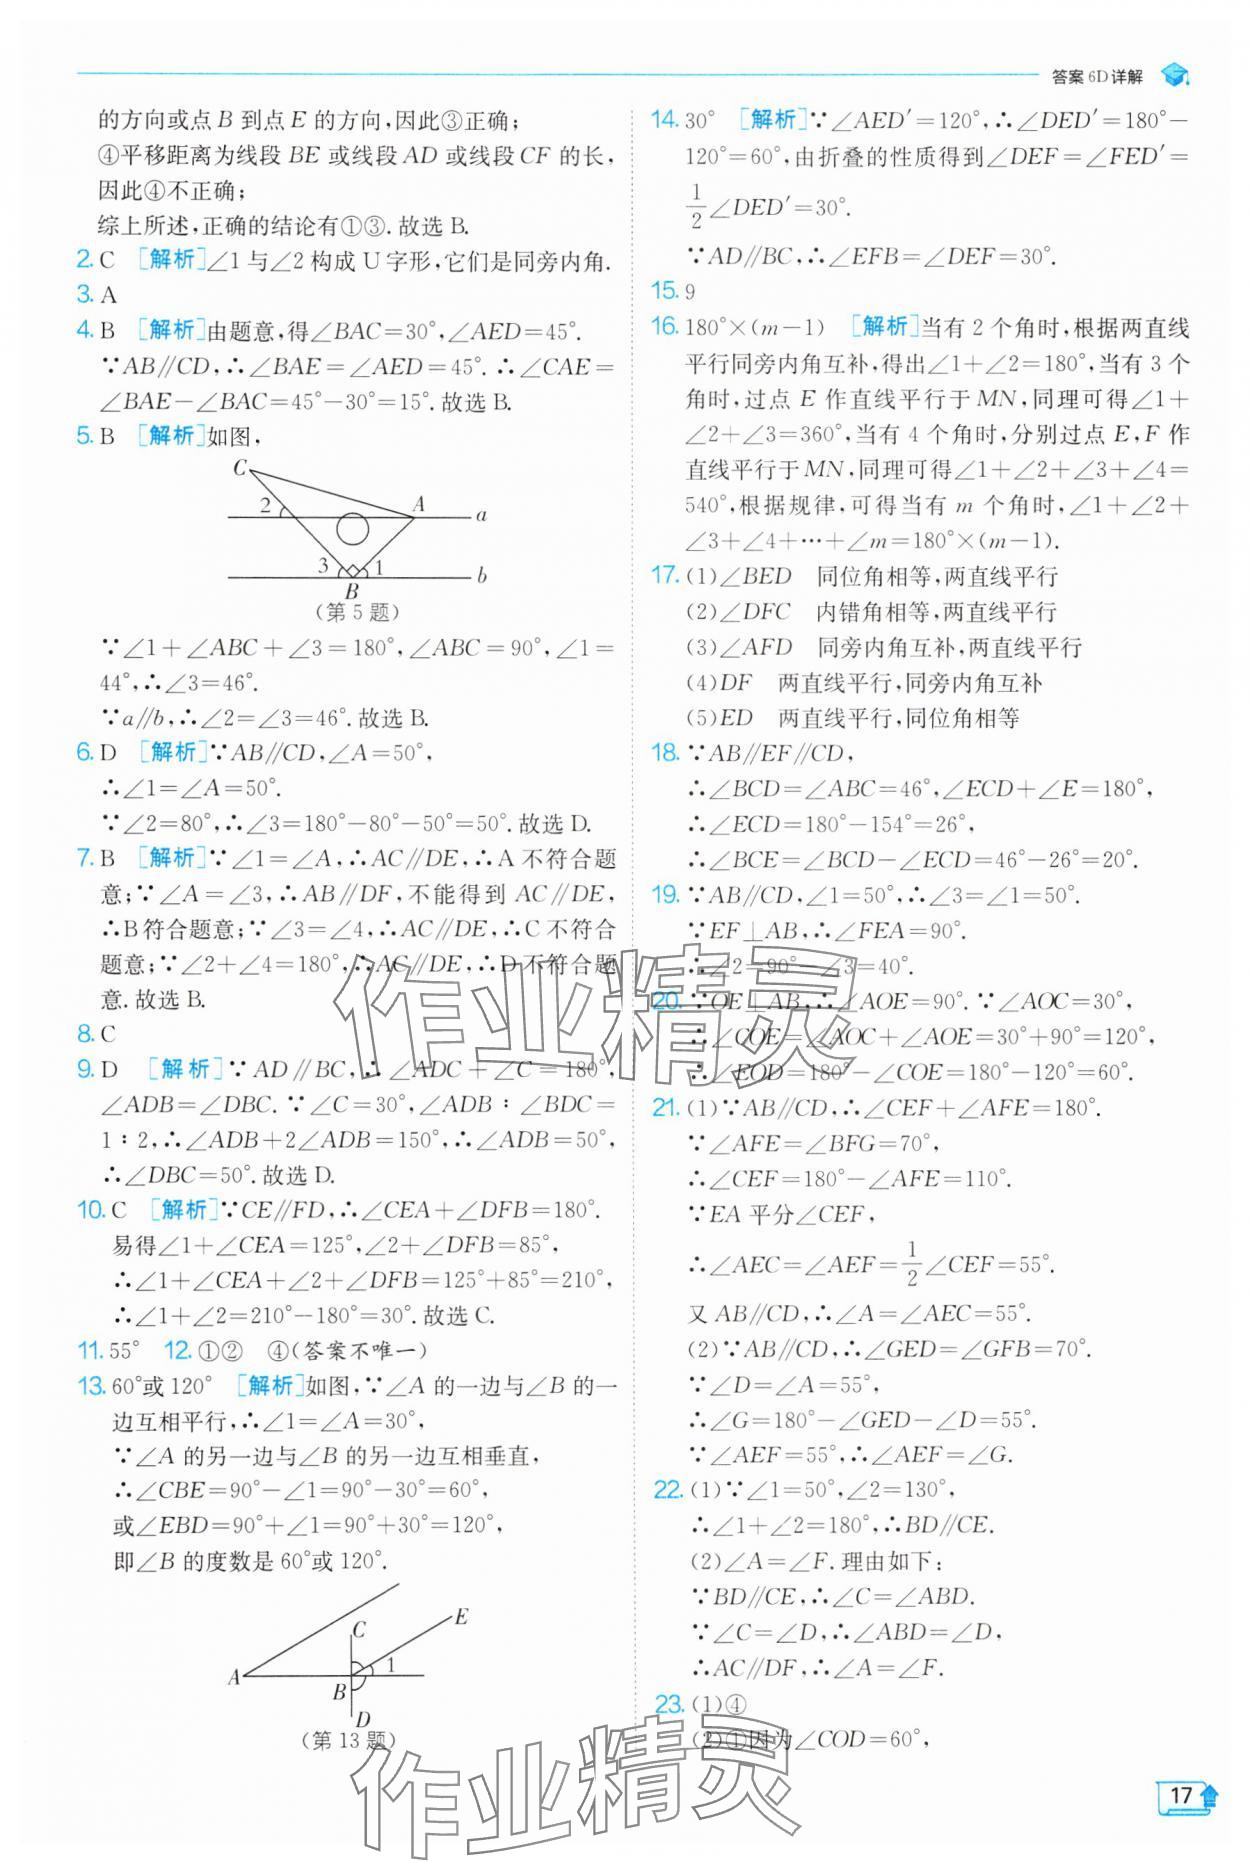 答案 6D详解
的方向或点 B 到点 E 的方向,因此③正确;
④平移距离为线段 BE 或线段 AD 或线段 CF 的长,
因此④不正确;
综上所述,正确的结论有①③.故选 B.
2. C [解析]∠1 与∠2 构成 U 字形,它们是同旁内角.
3. A
4. B [解析]由题意,得∠BAC=30°,∠AED=45°.
∵AB∥CD,∴∠BAE=∠AED=45°.∴∠CAE=
∠BAE-∠BAC=45°-30°=15°.故选 B.
5. B [解析]如图,
C
2
A
a
3
1
b
B
(第 5 题)
∵∠1+∠ABC+∠3=180°,∠ABC=90°,∠1=
44°,∴∠3=46°.
∵a∥b,∴∠2=∠3=46°.故选 B.
6. D [解析]∵AB∥CD,∠A=50°,
∴∠1=∠A=50°.
∵∠2=80°,∴∠3=180°-80°-50°=50°.故选 D.
7. B [解析]∵∠1=∠A,∴AC∥DE,∴A 不符合题
意;∵∠A=∠3,∴AB∥DF,不能得到 AC∥DE,
∴B符合题意;∵∠3=∠4,∴AC∥DE,∴C 不符合
题意;∵∠2+∠4=180°,∴AC∥DE,∴D 不符合题
意.故选 B.
8. C
9. D [解析]∵AD∥BC,∴∠ADC+∠C=180°,
∠ADB=∠DBC.∵∠C=30°,∠ADB∶∠BDC=
1∶2,∴∠ADB+2∠ADB=150°,∴∠ADB=50°,
∴∠DBC=50°.故选 D.
10. C [解析]∵CE∥FD,∴∠CEA+∠DFB=180°.
易得∠1+∠CEA=125°,∠2+∠DFB=85°,
∴∠1+∠CEA+∠2+∠DFB=125°+85°=210°,
∴∠1+∠2=210°-180°=30°.故选 C.
11. 55° 12. ①② ④(答案不唯一)
13. 60°或 120° [解析]如图,∵∠A 的一边与∠B 的一
边互相平行,∴∠1=∠A=30°,
∵∠A 的另一边与∠B 的另一边互相垂直,
∴∠CBE=90°-∠1=90°-30°=60°,
或∠EBD=90°+∠1=90°+30°=120°,
即∠B 的度数是 60°或 120°.
C
E
A
B
1
D
(第 13 题)
14. 30° [解析]∵∠AED′=120°,∴∠DED′=180°-
120°=60°,由折叠的性质得到∠DEF=∠FED′=
1/2∠DED′=30°.
∵AD∥BC,∴∠EFB=∠DEF=30°.
15. 9
16. 180°×(m-1) [解析]当有 2 个角时,根据两直线
平行同旁内角互补,得出∠1+∠2=180°,当有 3 个
角时,过点 E 作直线平行于 MN,同理可得∠1+
∠2+∠3=360°,当有 4 个角时,分别过点 E,F 作
直线平行于 MN,同理可得∠1+∠2+∠3+∠4=
540°,根据规律,可得当有 m 个角时,∠1+∠2+
∠3+∠4+…+∠m=180°×(m-1).
17. (1)∠BED 同位角相等,两直线平行
(2)∠DFC 内错角相等,两直线平行
(3)∠AFD 同旁内角互补,两直线平行
(4)DF 两直线平行,同旁内角互补
(5)ED 两直线平行,同位角相等
18. ∵AB∥EF∥CD,
∴∠BCD=∠ABC=46°,∠ECD+∠E=180°,
∴∠ECD=180°-154°=26°,
∴∠BCE=∠BCD-∠ECD=46°-26°=20°.
19. ∵AB∥CD,∠1=50°,∴∠3=∠1=50°.
∵EF⊥AB,∴∠FEA=90°.
∴∠2=90°-∠3=40°.
20. ∵OE⊥AB,∴∠AOE=90°.∵∠AOC=30°,
∴∠COE=∠AOC+∠AOE=30°+90°=120°,
∴∠EOD=180°-∠COE=180°-120°=60°.
21. (1)∵AB∥CD,∴∠CEF+∠AFE=180°.
∵∠AFE=∠BFG=70°,
∴∠CEF=180°-∠AFE=110°.
∵EA 平分∠CEF,
∴∠AEC=∠AEF=1/2∠CEF=55°.
又 AB∥CD,∴∠A=∠AEC=55°.
(2)∵AB∥CD,∴∠GED=∠GFB=70°.
∵∠D=∠A=55°,
∴∠G=180°-∠GED-∠D=55°.
∵∠AEF=55°,∴∠AEF=∠G.
22. (1)∵∠1=50°,∠2=130°,
∴∠1+∠2=180°,∴BD∥CE.
(2)∠A=∠F.理由如下:
∵BD∥CE,∴∠C=∠ABD.
∵∠C=∠D,∴∠ABD=∠D,
∴AC∥DF,∴∠A=∠F.
23. (1)④
(2)①因为∠COD=60°,
作业精灵
作业精灵
17